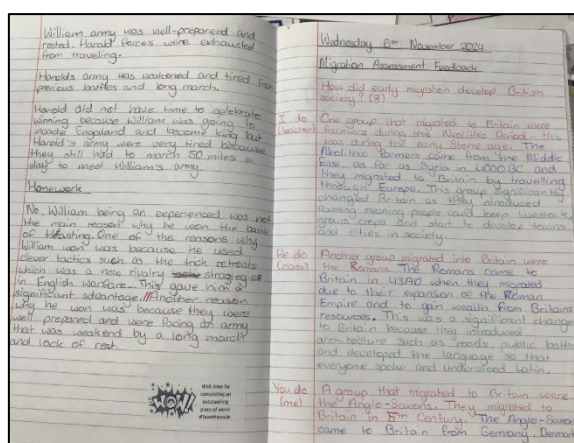 William army was well-prepared and
rested. Harold forces were exhausted
from traveling.
Harolds army was weakened and tired from
previous battles and long march.
Harold did not have time to celebrate
winning because William was going to
invade England and become king but
Harold's army were very tired because
they still had to march 50 miles a
day to meet William's army.
Homework
No, William being an experienced was not
the main reason why he won the battle
of Hasting. One of the reasons why
William won was because he used
clever tactics such as the trick retreats
which was a new rivalry strategies
in English warfare. This gave him a
significant advantage. // Another reason
why he won was because they were
well prepared and were facing an army
that was weakend by a long march
and lack of rest.
WOW!
Well done for
completing an
outstanding
piece of work!
Wednesday 6th November 2024
Migration Assessment Feedback
How did early migration develop British
society? (8)
I do
(teacher)
One group that migrated to Britain were
farmers during the Neolithic Period - this
was during the early Stone age. The
Neolithic farmers came from the Middle
East as far as Syria in 4000 BC and
they migrated to Britain by travelling
through Europe. This group significantly
changed Britain as they introduced
farming meaning people could keep livestock,
grow crops and start to develop towns
and cities in society.
We do
Another group migrated into Britain were
the Romans. The Romans came to
Britain in 43AD when they migrated
due to their expansion of the Roman
Empire and to gain wealth from Britains
resources. This was a significant change
to Britain because they introduced
architecture such as roads, public baths
and developed the language so that
everyone spoke and understood Latin.
You do
(me)
A group that migrated to Britain were
the Anglo-Saxons. They migrated to
Britain in 5th Century. The Anglo-Saxons
came to Britain from Germany, Denmark